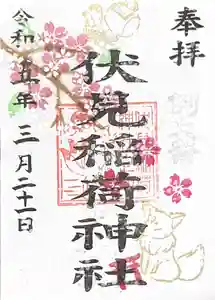 奉拝
伏見稲荷神社
令和五年三月二十一日